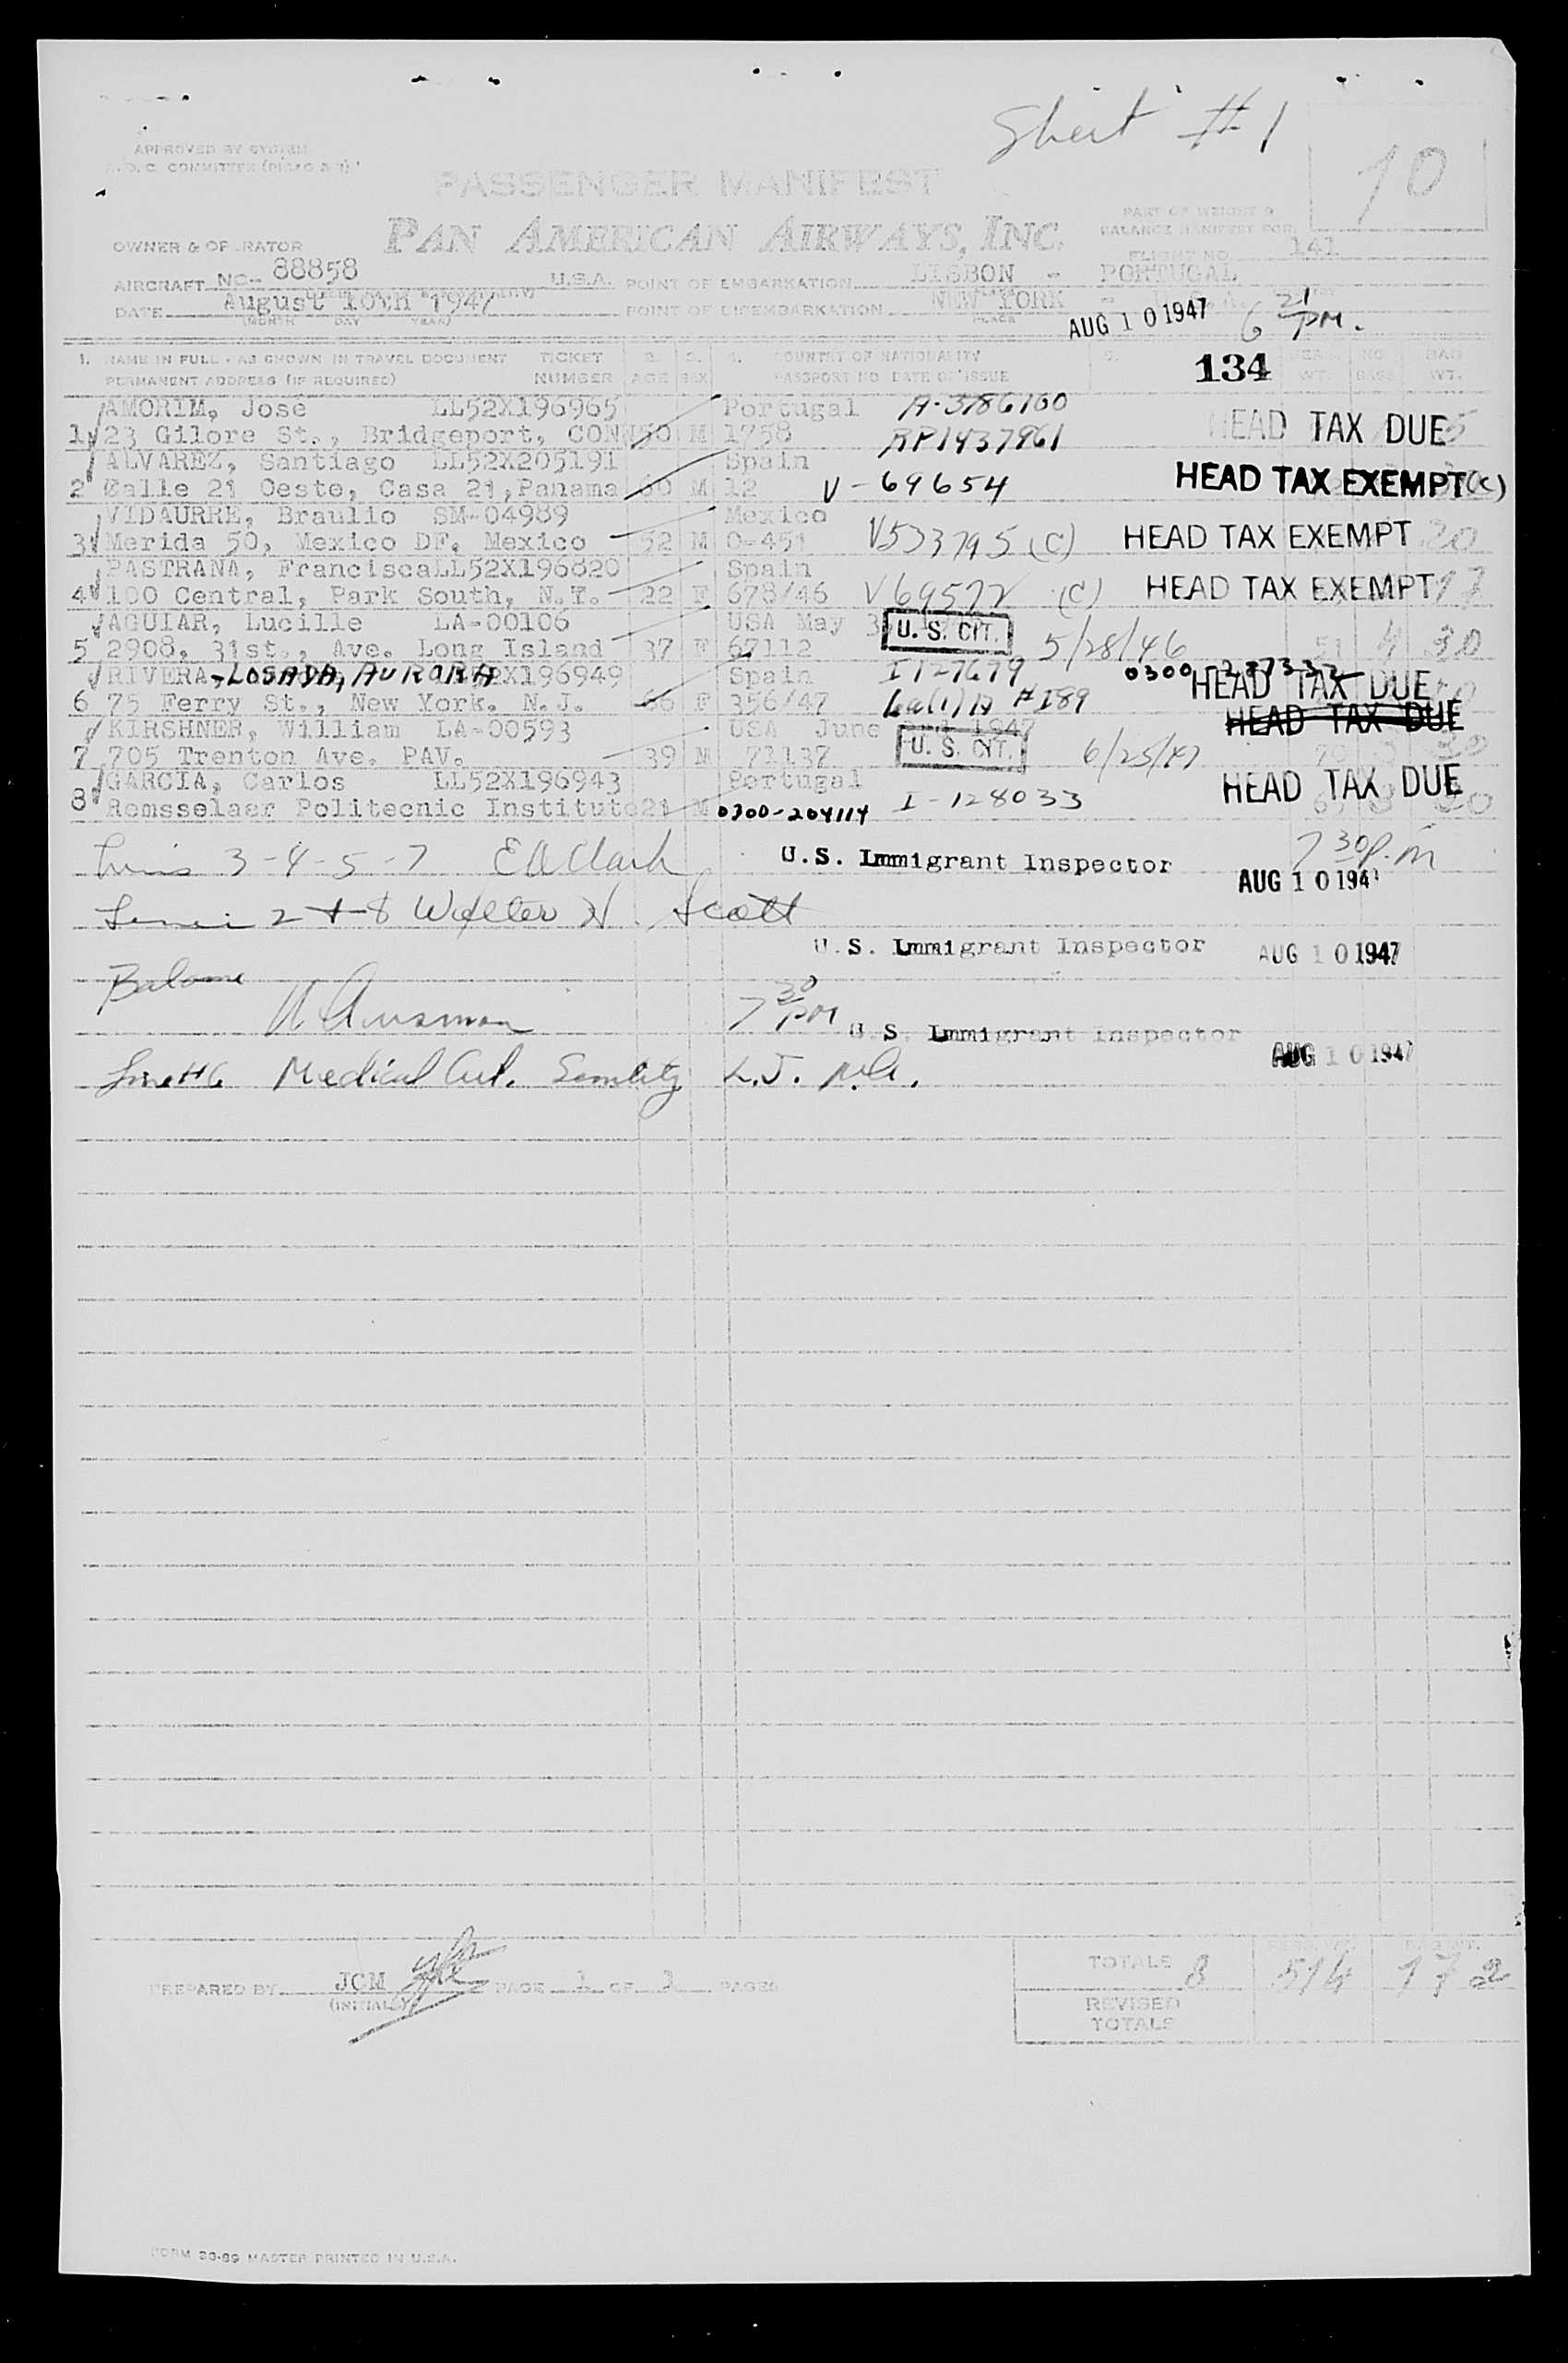 Sheet #1
10
APPROVED BY SYSTEM
PASSENGER MANIFEST
PAN AMERICAN AIRWAYS, INC.
PART OF WEIGHT &
BALANCE MANIFEST FOR
OWNER & OPERATOR
FLIGHT NO. 141
AIRCRAFT NC- 88858 U.S.A. POINT OF EMBARKATION LISBON - PORTUGAL
DATE August 10th 1947 POINT OF DISEMBARKATION NEW YORK - U.S.A.
(MONTH DAY YEAR) PLACE
AUG 10 1947 6 21 PM.
1. NAME IN FULL - AS SHOWN IN TRAVEL DOCUMENT TICKET 2. 3. 4. COUNTRY OF NATIONALITY 5. NO. BAG
PERMANENT ADDRESS (IF REQUIRED) NUMBER AGE SEX PASSPORT NO. DATE OF ISSUE 134 WT. BAGS WT.
AMORIM, José LL52X196965 Portugal A-3786100
1 23 Gilore St., Bridgeport, CONN 50 M 1758 RP1437961 HEAD TAX DUE
ALVAREZ, Santiago LL52X205191 Spain
2 Calle 21 Oeste, Casa 21, Panama 60 M 12 V-69654 HEAD TAX EXEMPT (c)
VIDAURRE, Braulio SM-04989 Mexico
3 Merida 50, Mexico DF. Mexico 52 M 0-451 V533795 (C) HEAD TAX EXEMPT 20
PASTRANA, Francisca LL52X196820 Spain
4 100 Central, Park South, N.Y. 22 F 678/46 V69572 (C) HEAD TAX EXEMPT 17
AGUIAR, Lucille LA-00106 USA May
5 2908, 31st., Ave. Long Island 37 F 67112 U.S. CIT. 5/28/46 51 4 30
RIVERA-LOSADA, AURORA 2X196949 Spain I127679
6 75 Ferry St., New York. N.J. 66 F 356/47 6a(1)B #I89 HEAD TAX DUE
HEAD TAX DUE
KIRSHNER, William LA-00593 USA June 1947
7 705 Trenton Ave. PAV. 39 M 71137 U.S. CIT. 6/25/47 70 3 30
GARCIA, Carlos LL52X196943 Portugal
8 Remsselaer Politecnic Institute 21 M 0300-204114 I-128033 HEAD TAX DUE 20
Lines 3-4-5-7 E A Clark U.S. Immigrant Inspector 7 30 p.m
AUG 10 194
Lines 2+8 Walter H. Scott
U.S. Immigrant Inspector AUG 10 1947
Balance
7 30 PM U.S. Immigrant Inspector
AUG 10 1947
Line #6 Medical Cert. Senility
PREPARED BY JCM PAGE 1 OF PAGES
(INITIALS)
TOTALS 8 514 172
REVISED
TOTALS
FORM 33-99 MASTER PRINTED IN U.S.A.